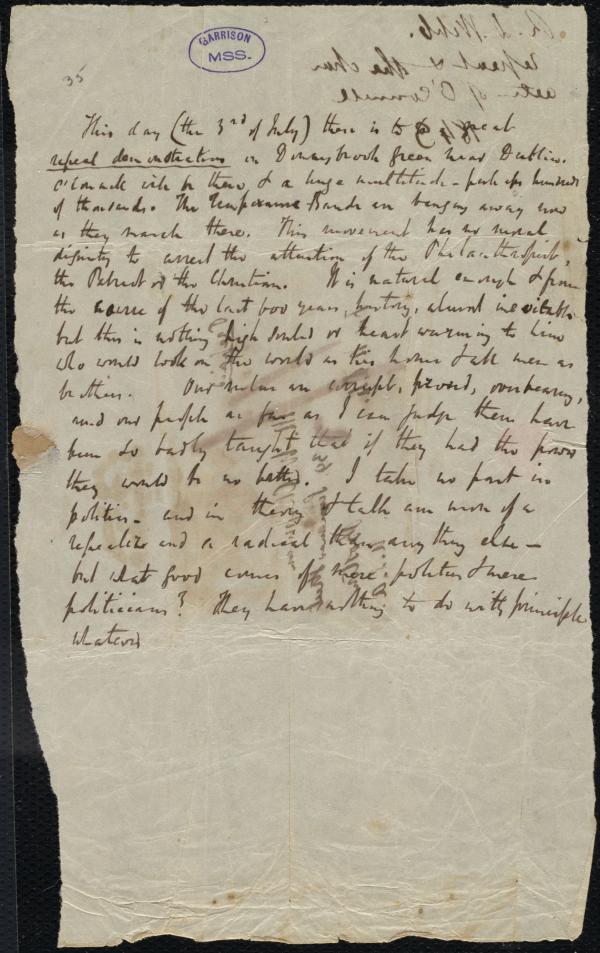 GARRISON
MSS.
35
R. D. Webb.
repeal & the char
acter of O'Connell
1843
This day (the 3rd of July) there is to be a great
repeal demonstration in Donnybrook green near Dublin.
O'Connell will be there, & a huge multitude - perhaps hundreds
of thousands. The Temperance Bands are banging away now
as they march there. This movement has no moral
dignity to arrest the attention of the Philanthropist,
the Patriot or the Christian. It is natural enough & from
the course of the last 600 years, history, almost inevitable
but this is nothing high souled or heart warming to him
who would look on the world as his home & all men as
brothers. Our rulers are corrupt, proud, overbearing,
and our people as far as I can judge them have
been so badly taught that if they had the power
they would be no better. I take no part in
politics - and in theory & talk am more of a
repealer and a radical than any thing else -
but what good comes of mere politics & mere
politicians? They have nothing to do with principle
whatever